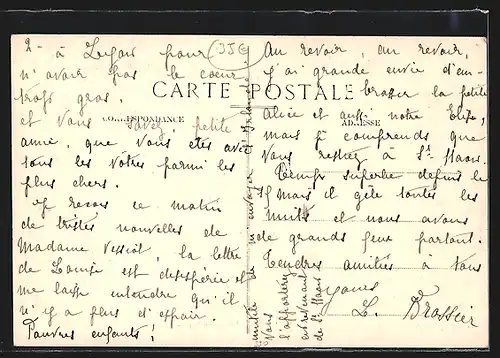 2- à Luçon pour
n'avoir pas le coeur
trop gros.
et vous savez, petite
amie, que vous êtes avec
tous les vôtres parmi les
plus chers.
Je reçois ce matin
de tristes nouvelles de
Madame Vessiot, la lettre
de Louise est désespérée et
me laisse entendre qu'il
n'y a plus d'espoir.
Pauvres enfants!
CARTE POSTALE
CORRESPONDANCE
ADRESSE
Au revoir, au revoir,
j'ai grande envie d'em-
brasser la petite
Alice et aussi notre
mais je comprends que
vous restiez à St
Temps superbe depuis le
15 mais il gèle toutes les
nuits et nous avons
de grands feux partout.
Tendres amitiés à vous
L. Brossier
inutile de m'envoyer
vous l'apporterez
en revenant
de St